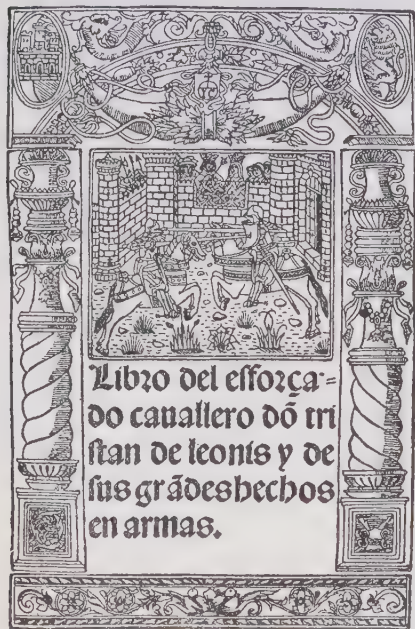 Libro del esforça=
do cauallero dõ tri
stan de leonis y de
sus grãdes hechos
en armas.